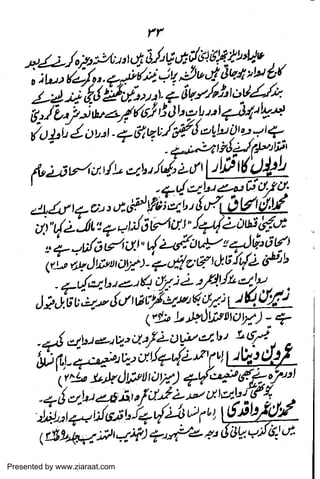 ۳۳
عالیہ اور اپنے بھرائی اپنی کتابیں تیار کرتی ہیں اور ناشتہ وغیرہ کر کے بعد
کالج روانہ ہو جاتی ہیں عائشہ پر اب نیند کا غلبہ ہے۔ وہ کمرے کا دروازہ
بند کر کے لحاف اوڑھ کر سو جاتی ہے۔ اور دو تین گھنٹے کی نیند لینے کے
بعد بیدار ہوتی ہے اور روایات والی ڈائری کا پھر سے مطالعہ شروع کر دیتی
ہے اب وہ ان روایات کی تحقیق کرنا چاہتی ہے۔ اور ان کے راویوں کا
اقتدار معلوم کرنے کی خواہشمند ہے۔
راویوں کا اقتدار اس نے دیکھا کہ روایت ۱ کو ابن اسحاق نے عاصم
بن عمر بن قتادہ سے روایت کیا ہے۔
محمد ابن اسحاق جس کی روایت ذخائر العقبیٰ میں درج ہے اس کے بارے
میں یحییٰ قطان نے کہا ہے کہ "ابن اسحاق کذاب ہے" مالک نے کہا "ابن
اسحاق دجال ہے" سلیمان تیمی نے کہا "ابن اسحاق کذاب ہے"
دارقطنی نے کہا کہ قابل احتجاج نہیں ہے۔ (میزان الاعتدال جلد ۳ ص۲۱)
روایت ۲ کو ابو عمرو نے زہیر بن بکار سے روایت کیا ہے۔
زہیر بن بکار زہیر بن بکار حدیث گھڑتا تھا اس کی حدیث ناقابل قبول
ہے۔ (میزان الاعتدال جلد ۱ ص۳۴۰)
تیسری ۳ روایت سفیان نے عمرو بن دینار سے روایت کی ہے۔
عمرو بن دینار امام احمد نے کہا ہے کہ ابن دینار ضعیف ہے۔ امام نسائی
اور مرہ نے بھی ضعیف کہا ہے (میزان الاعتدال جلد ۲ ص۲۸۷)
چوتھی ۴ روایت ابن سعد نے محمد بن عمرو واقدی سے روایت کی ہے۔
محمد بن عمرو واقدی امام نسائی نے کہا ہے کہ واقدی کذاب ہے اور بغداد
میں اپنی کذب بیانی کی وجہ سے مشہور ہے (تہذیب التہذیب جلد ۹
Presented by www.ziaraat.com